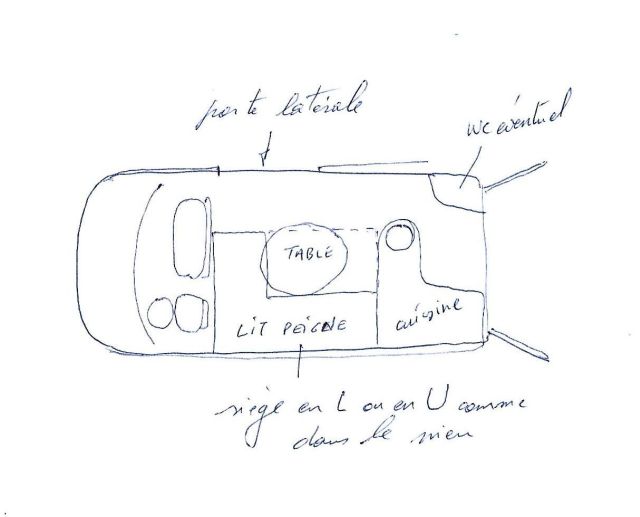 porte latérale
wc éventuel
TABLE
LIT PEIGNE
cuisine
siège en L ou en U comme
dans le mien